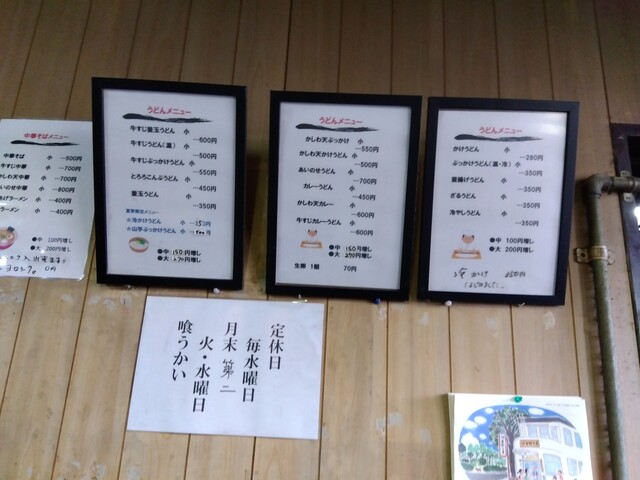 中華そばメニュー
中華そば 小 …500円
牛すじ中華 小 …700円
かしわ天中華 小 …700円
あいのせ中華 小 …800円
小 …400円
ラーメン 小 …400円
●中 100円増し
●大 200円増し
うどんメニュー
牛すじ釜玉うどん 小 …600円
牛すじうどん(温) 小 …500円
牛すじぶっかけうどん 小 …550円
とろろこんぶうどん 小 …450円
釜玉うどん 小 …350円
夏季限定メニュー
※冷かけうどん 小
※山芋ぶっかけうどん 小
●中 150円増し
●大 270円増し
うどんメニュー
かしわ天ぶっかけ 小 …550円
かしわ天かけうどん 小 …500円
あいのせうどん 小 …700円
カレーうどん 小 …450円
かしわ天カレー 小 …600円
牛すじカレーうどん 小 …600円
●中 150円増し
●大 270円増し
生卵 1個 70円
うどんメニュー
かけうどん 小 …280円
ぶっかけうどん(温・冷) 小 …350円
釜揚げうどん 小 …350円
ざるうどん 小 …350円
冷やしうどん 小 …350円
●中 100円増し
●大 200円増し
かけ
はじめました
定休日
毎水曜日
月末 第二
火・水曜日
喰うかい